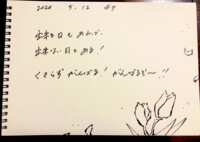 2020 5.12
出来る日もあれば、
出来ない日もある!
くさらずがんばる! がんばるぞ〜!!